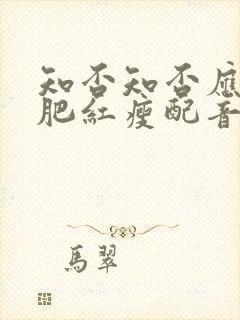 知否知否應
肥紅瘦配音
馬翠